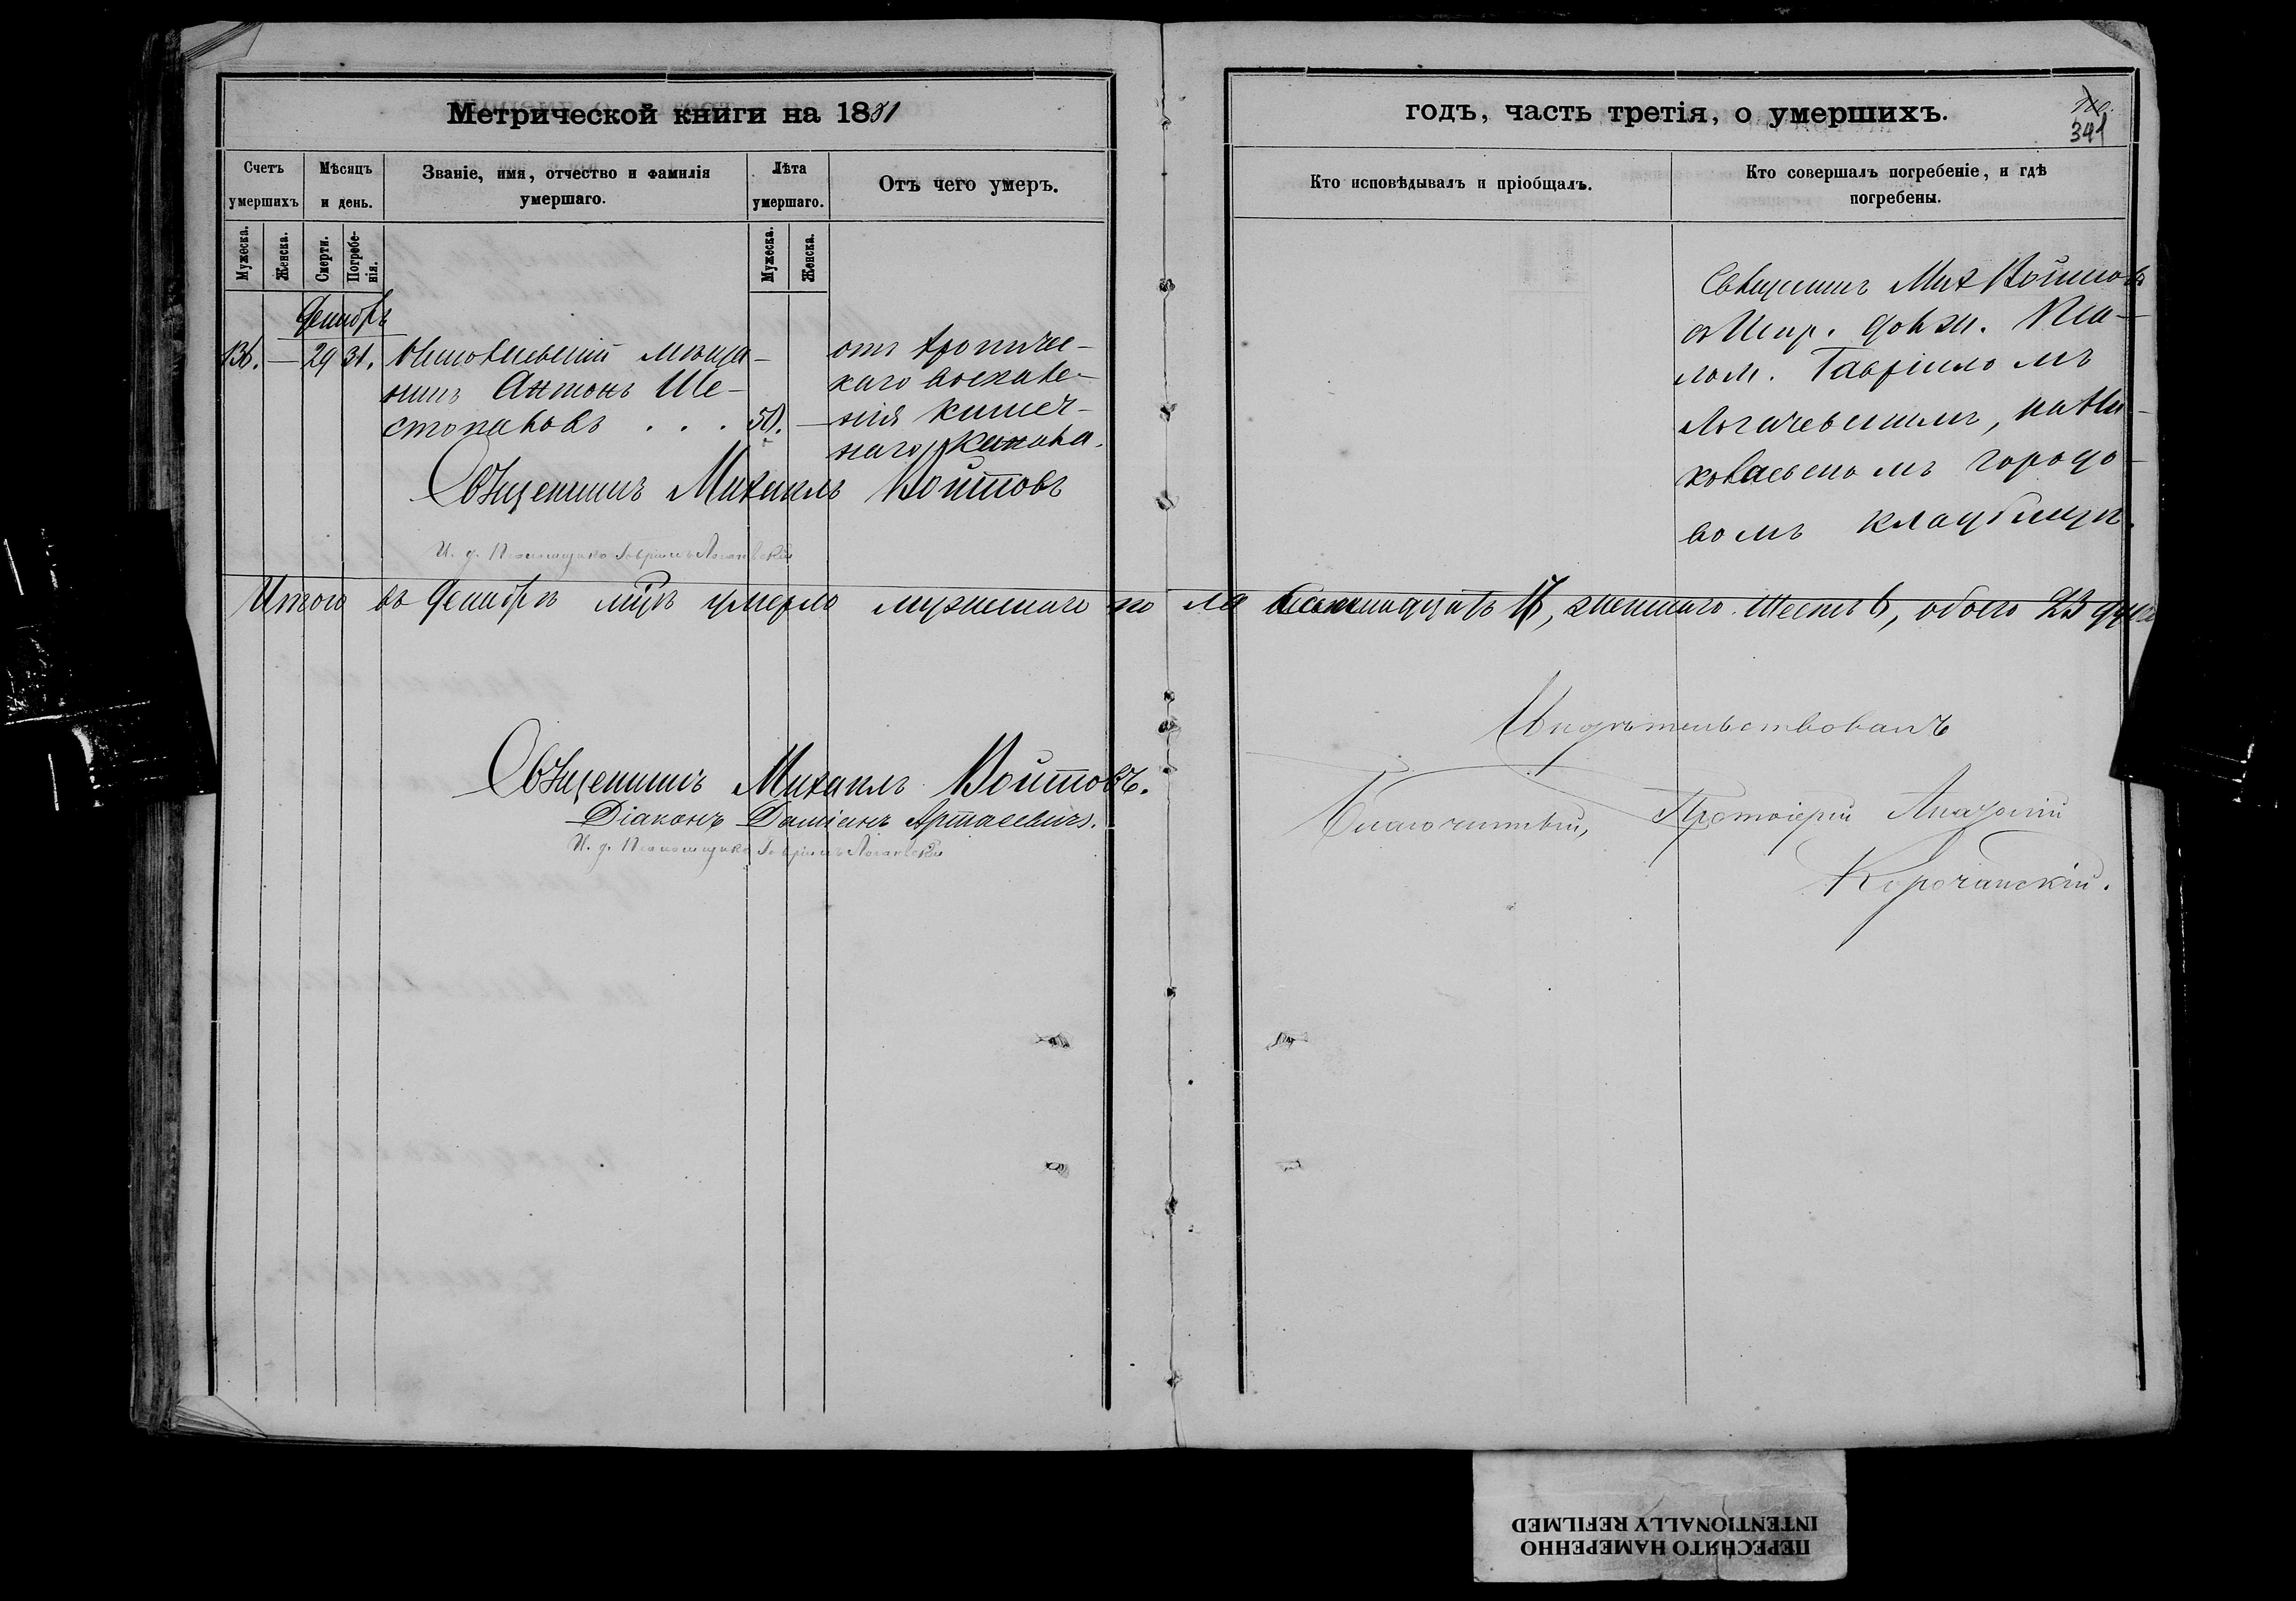 Метрической книги на 1881
годъ, часть третія, о умершихъ.
341
Счетъ умершихъ
Мѣсяцъ и день.
Званіе, имя, отчество и фамилія умершаго.
Лѣта умершаго.
Отъ чего умеръ.
Кто исповѣдывалъ и пріобщалъ.
Кто совершалъ погребеніе, и гдѣ погребены.
Мужеска.
Женска.
Смерти.
Погребе-
нія.
Мужеска.
Женска.
Декабрь
136. — 29 31.
мѣща-
нинъ Антонъ Ше-
стопаловъ . . . 50. —
отъ хрониче-
скаго воспале-
нія кишеч-
наго канала.
Священникъ Мих Войтовъ
съ Испр. долж. Пса-
лом. Гавріиломъ
Логачевскимъ, на
городо-
вомъ кладбищѣ.
Священникъ Михаилъ Войтовъ
И. д. Псаломщика Гавріилъ Логачевскій
Итого въ Декабрѣ м͠цѣ умерло мужескаго пола семнадцать 17, женскаго шесть 6, обоего 23 души
Священникъ Михаилъ Войтовъ.
Діаконъ Даміанъ
И. д. Псаломщика Гавріилъ Логачевскій
Свидѣтельствовалъ
Благочинный, Протоіерей
Корочанскій.
ПЕРЕСНЯТО НАМЕРЕННО
INTENTIONALLY REFILMED